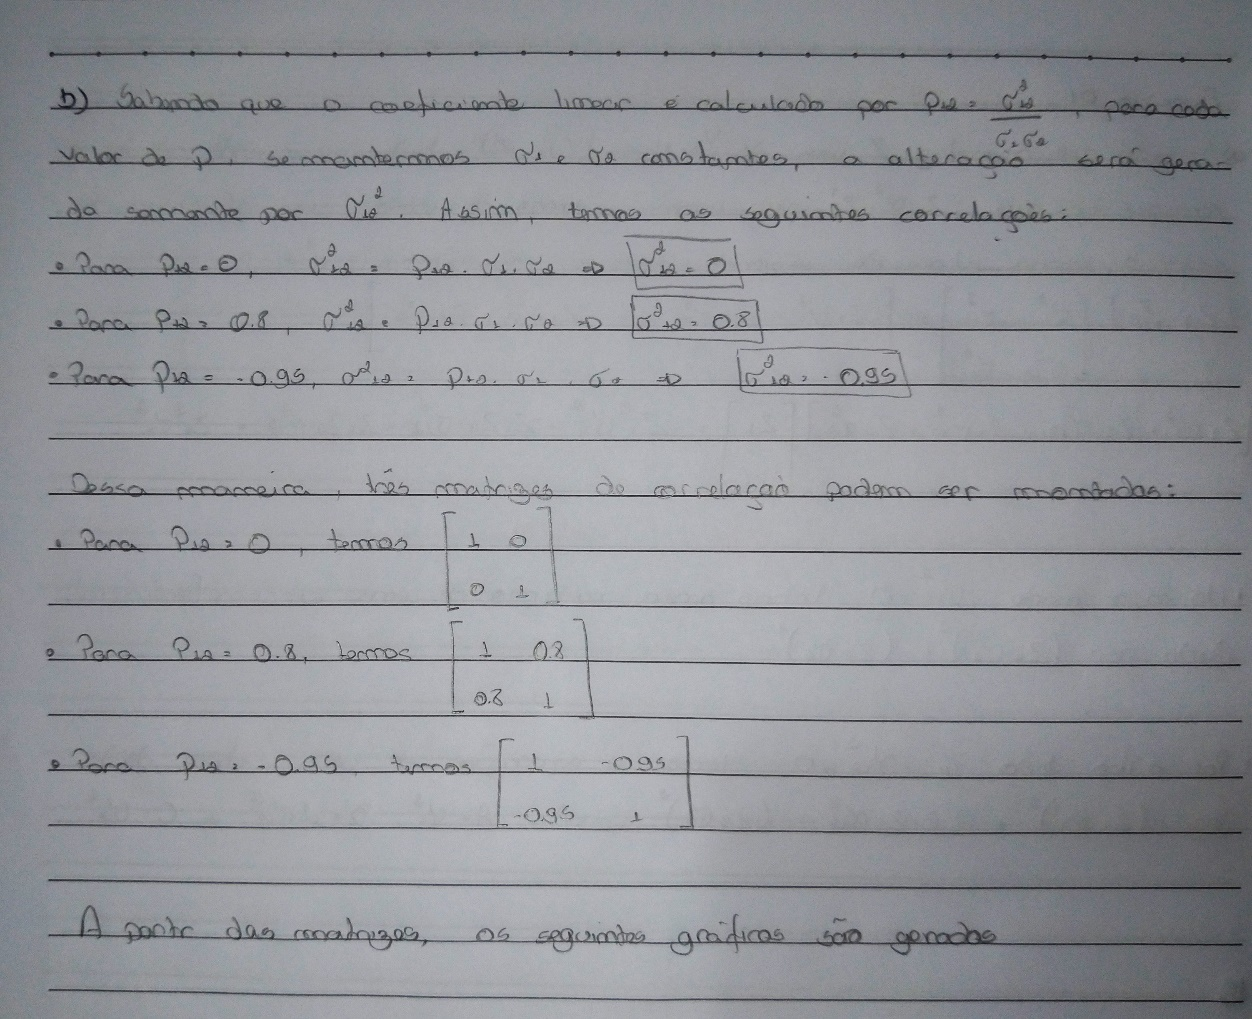 b) Sabendo que o coeficiente linear é calculado por ρ₁₂ = σ²₁₂ / σ₁σ₂, para cada
valor de ρ, se mantermos σ₁ e σ₂ constantes, a alteração será gera-
da somente por σ₁₂². Assim, temos as seguintes correlações:
• Para ρ₁₂ = 0, σ²₁₂ = ρ₁₂ . σ₁ . σ₂ ⇒ σ²₁₂ = 0
• Para ρ₁₂ = 0.8, σ²₁₂ = ρ₁₂ . σ₁ . σ₂ ⇒ σ²₁₂ = 0.8
• Para ρ₁₂ = -0.95, σ²₁₂ = ρ₁₂ . σ₁ . σ₂ ⇒ σ²₁₂ = -0.95
Dessa maneira, três matrizes de correlação podem ser montadas:
• Para ρ₁₂ = 0, temos [1 0
0 1]
• Para ρ₁₂ = 0.8, temos [1 0.8
0.8 1]
• Para ρ₁₂ = -0.95 temos [1 -0.95
-0.95 1]
A partir das matrizes, os seguintes gráficos são gerados